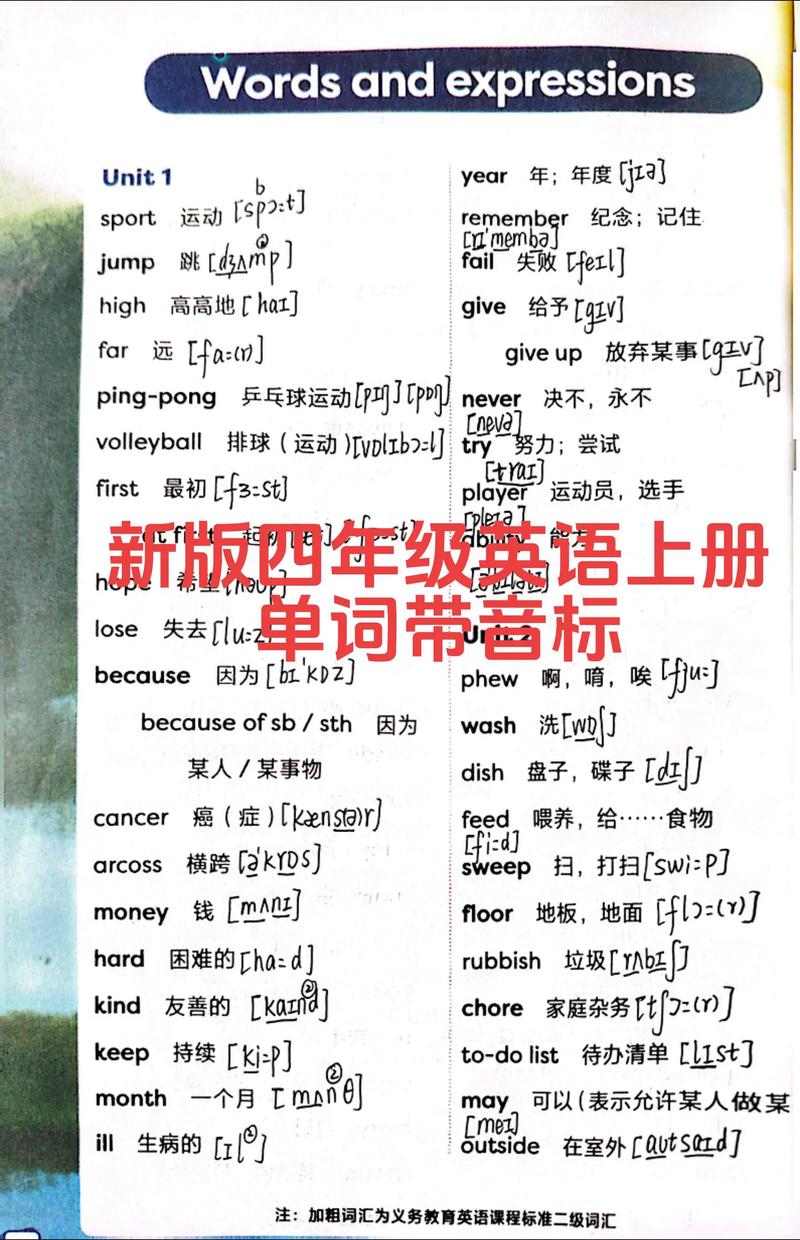 Words and expressions
Unit 1
b
sport 运动 [spɔ:t]
jump 跳 [dʒʌmp]
high 高高地 [haɪ]
far 远 [fa:(r)]
ping-pong 乒乓球运动 [pɪŋ] [pɒŋ]
volleyball 排球（运动）[vɒlɪbɔ:l]
first 最初 [fɜ:st]
at first 起初
hope 希望 [həʊp]
lose 失去 [lu:z]
because 因为 [bɪ'kɒz]
because of sb / sth 因为
某人 / 某事物
cancer 癌（症）[kænsə)r]
arcoss 横跨 [ə'krɒs]
money 钱 [mʌnɪ]
hard 困难的 [ha:d]
kind 友善的 [kaɪnd]
keep 持续 [ki:p]
month 一个月 [mʌnθ]
ill 生病的 [ɪl]
year 年；年度 [jɪə]
remember 纪念；记住
[rɪ'membə]
fail 失败 [feɪl]
give 给予 [gɪv]
give up 放弃某事 [gɪv]
[ʌp]
never 决不，永不
[nevə]
try 努力；尝试
[traɪ]
player 运动员，选手
[pleɪə]
ability 能力
新版四年级英语上册
单词带音标
Unit 2
phew 啊，唷，唉 [fju:]
wash 洗 [wɒʃ]
dish 盘子，碟子 [dɪʃ]
feed 喂养，给……食物
[fi:d]
sweep 扫，打扫 [swi:p]
floor 地板，地面 [flɔ:(r)]
rubbish 垃圾 [rʌbɪʃ]
chore 家庭杂务 [tʃɔ:(r)]
to-do list 待办清单 [lɪst]
may 可以（表示允许某人做某
[meɪ]
outside 在室外 [aʊtsaɪd]
注：加粗词汇为义务教育英语课程标准二级词汇